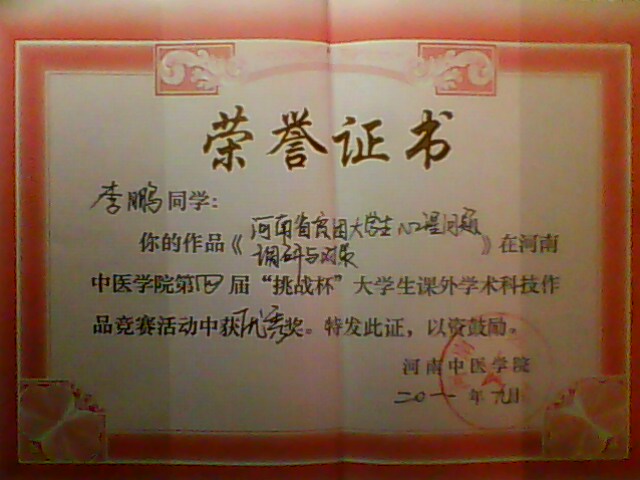 荣誉证书
李鹏同学：
你的作品《河南省贫困大学生心理问题
调研与对策》在河南
中医学院第四届“挑战杯”大学生课外学术科技作
品竞赛活动中获优秀奖。特发此证，以资鼓励。
河南中医学院
二〇一一年九月